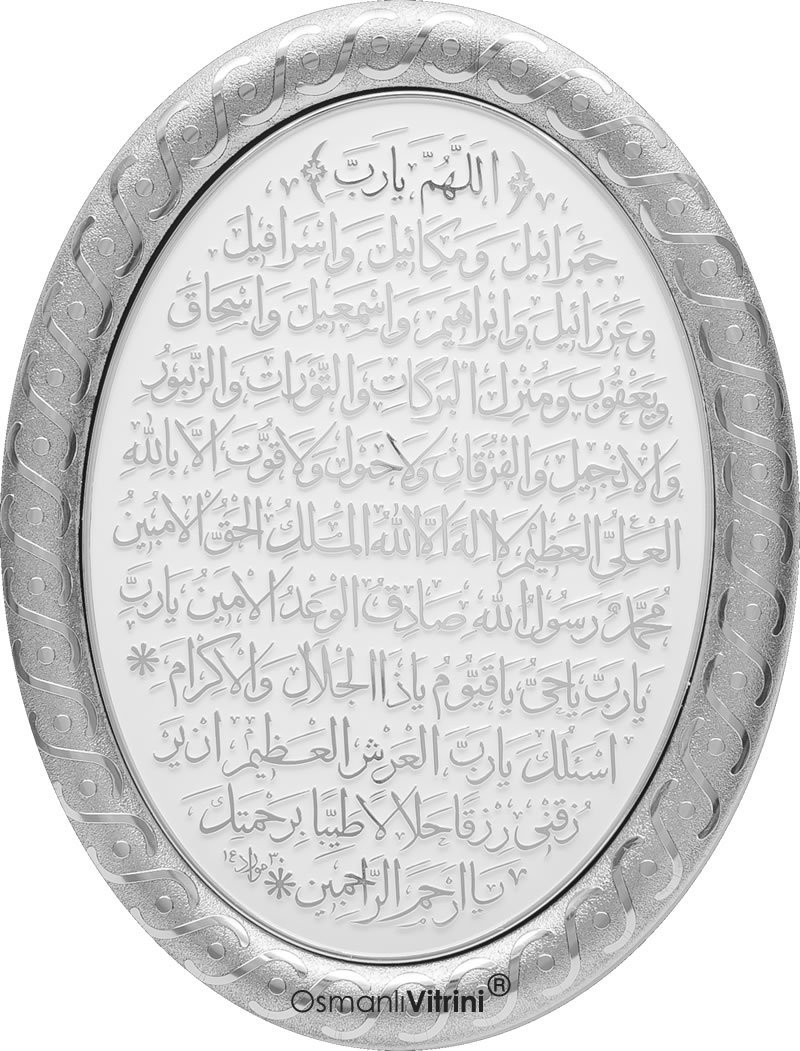 اَللّٰهُمَّ يَارَبَّ
جَبْرَائِيلَ وَمِيكَائِيلَ وَاِسْرَافِيلَ
وَعَزْرَائِيلَ وَاِبْرَاهِيمَ وَاِسْمٰعِيلَ وَاِسْحَاقَ
وَيَعْقُوبَ وَمُنْزِلَ الْبَرَكَاتِ وَالتَّوْرَاتِ وَالزَّبُورِ
وَالْاِنْجِيلِ وَالْفُرْقَانِ وَلَا حَوْلَ وَلَا قُوَّتَ اِلَّا بِاللّٰهِ
الْعَلِىِّ الْعَظِيمِ لَا اِلٰهَ اِلَّا اللّٰهُ الْمَلِكُ الْحَقُّ الْمُبِينُ
مُحَمَّدٌ رَسُولُ اللّٰهِ صَادِقُ الْوَعْدُ الْاَمِينَ يَارَبَّ
يَارَبِّ يَاحَىُّ يَاقَيُّومُ يَاذَا الْجَلَالِ وَالْاِكْرَامِ *
اَسْئَلُكَ يَارَبَّ الْعَرْشِ الْعَظِيمِ اَنْ يَرْ
زُقَنِى رِزْقًا حَلَالًا طَيِّبًا بِرَحْمَتِكَ
يَا اَرْحَمَ الرَّاحِمِينَ *
OsmanlıVitrini®